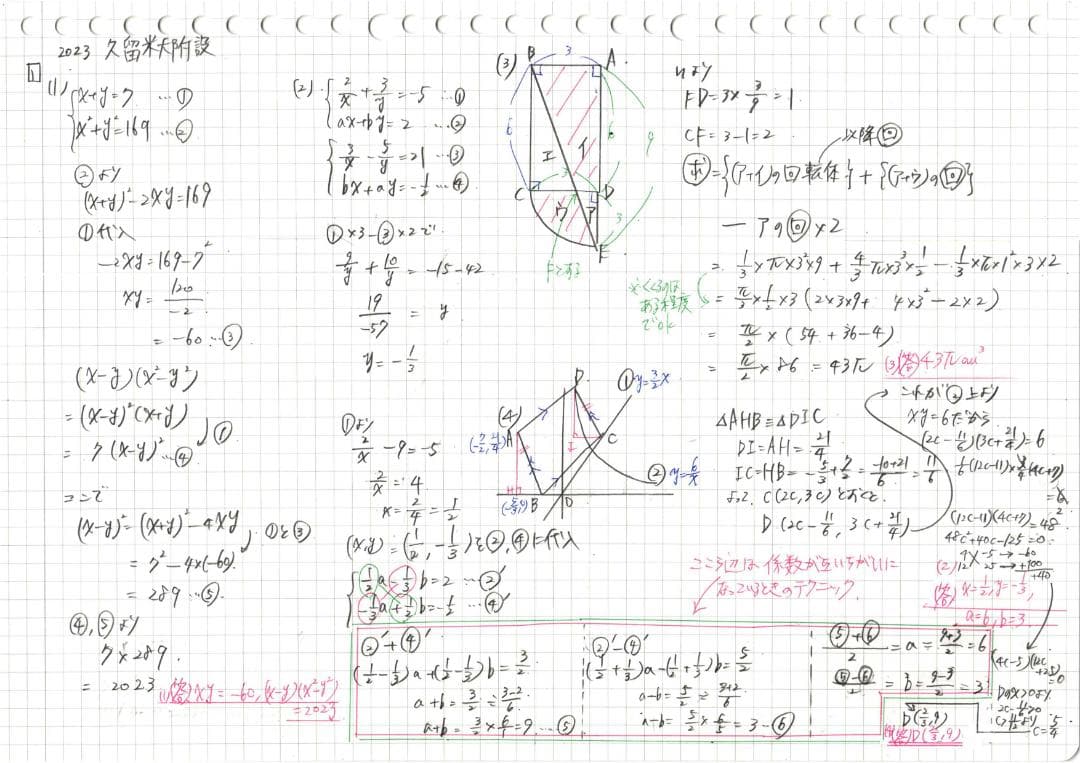 2023 久留米大附設
1
(1)
x+y=7 …①
x²+y²=169 …②
②より
(x+y)²-2xy=169
①代入
-2xy=169-7²
xy=120/-2
=-60…③
(x-y)(x²-y²)
=(x-y)²(x+y)
①
=7(x-y)²…④
ここで
(x-y)²=(x+y)²-4xy
①と③
=7²-4×(-60)
=289…⑤
④,⑤より
7×289
=2023
(1)(答)xy=-60,(x-y)(x²-y²)
=2023
(2)
2/x+3/y=-5 …①
ax+by=2 …②
3/x-5/y=21 …③
bx+ay=-1/2 …④
①×3-③×2で
9/y+10/y=-15-42
19/-57=y
y=-1/3
①より
2/x-9=-5
2/x=4
x=2/4=1/2
(x,y)=(1/2,-1/3)を②,④に代入
1/2a-1/3b=2 …②'
-1/3a+1/2b=-1/2 …④'
ここら辺は係数が互いちがいに
なっているときのテクニック
②'+④'
(1/2-1/3)a+(1/2-1/3)b=3/2
a+b=3/2÷3-2/6
a+b=3/2×6/1=9…⑤
②'-④'
(1/2+1/3)a-(1/2+1/3)b=5/2
a-b=5/2÷3+2/6
a-b=5/2×6/5=3-⑥
⑤+⑥/2=a=9+3/2=6
⑤-⑥/2=b=9-3/2=3
(3)
B
3
A
6
イ
6
9
エ
3
C
D
ウ
ア
3
E
Fとする
※くくるのは
ある程度
でok
いより
FD=3×3/9=1
CF=3-1=2
以降回
求={(ア+イ)の回転体}+{(ア+ウ)の回}
-アの回×2
=1/3×π×3²×9+4/3π×3³×1/2-1/3×π×1²×3×2
=π/2×1/2×3(2×3×9+4×3²-2×2)
=π/2×(54+36-4)
=π/2×86=43π
(3)(答)43πcm³
(4)
D
①y=3/2x
A
(-7/2,21/4)
I
C
②y=6/x
H
B
O
△AHB≡△DIC
DI=AH=21/4
IC=HB=-5/3+7/2=-10+21/6=11/6
よって C(2c,3c)とおくと
D(2c-11/6,3c+21/4)
これが②上より
xy=6だから
(2c-11/6)(3c+21/4)=6
1/6(12c-11)×3/4(4c+7)
=6
(12c-11)(4c+7)=48
48c²+40c-125=0
4 -5→-60
12 25→+100
+40
(2)
(答)x=1/2,y=-1/3,
a=6,b=3
(4c-5)(12c
+25)
=0
Dのx>0より
2c-11/6>0
c>11/12より
c=5/4
D(2/3,9)
(4)(答)D(2/3,9)